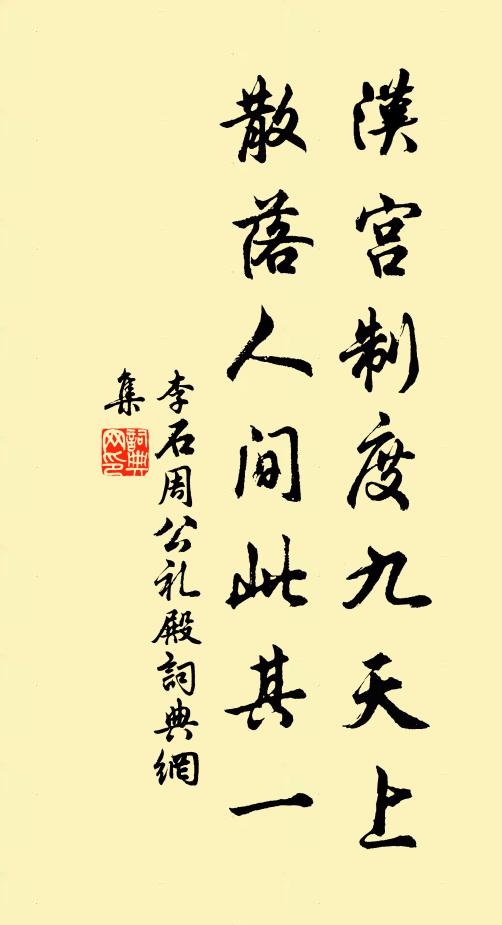 漢宮制度九天上
散落人間此其一
李石周公礼殿詞典網
集
詞典
网印